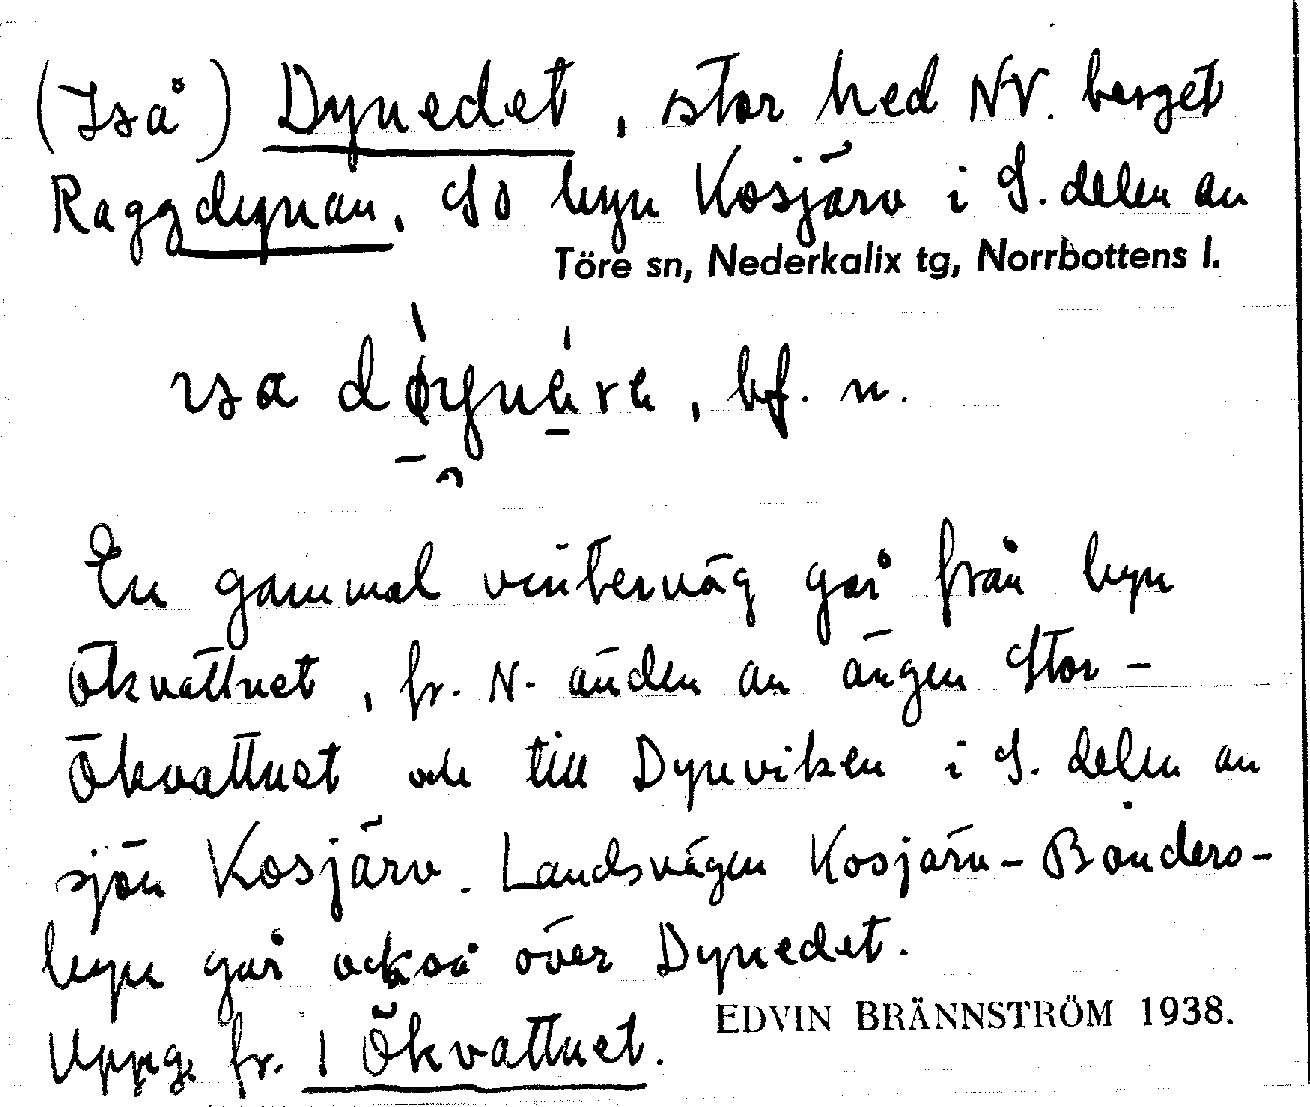 (Iså) Dynedet, stor hed NV. berget
Raggdynan. SO byn Kosjärv i S. delen av
Töre sn, Nederkalix tg, Norrbottens l.
bf. n.
En gammal vinterväg går från byn
Ökvattnet, fr. N. änden av ängen Stor-
Ökvattnet och till Dynviken i S. delen av
sjön Kosjärv. Landsvägen Kosjärv - Bönders-
byn går också över Dynedet.
EDVIN BRÄNNSTRÖM 1938.
Uppg. fr. 1 Ökvattnet.